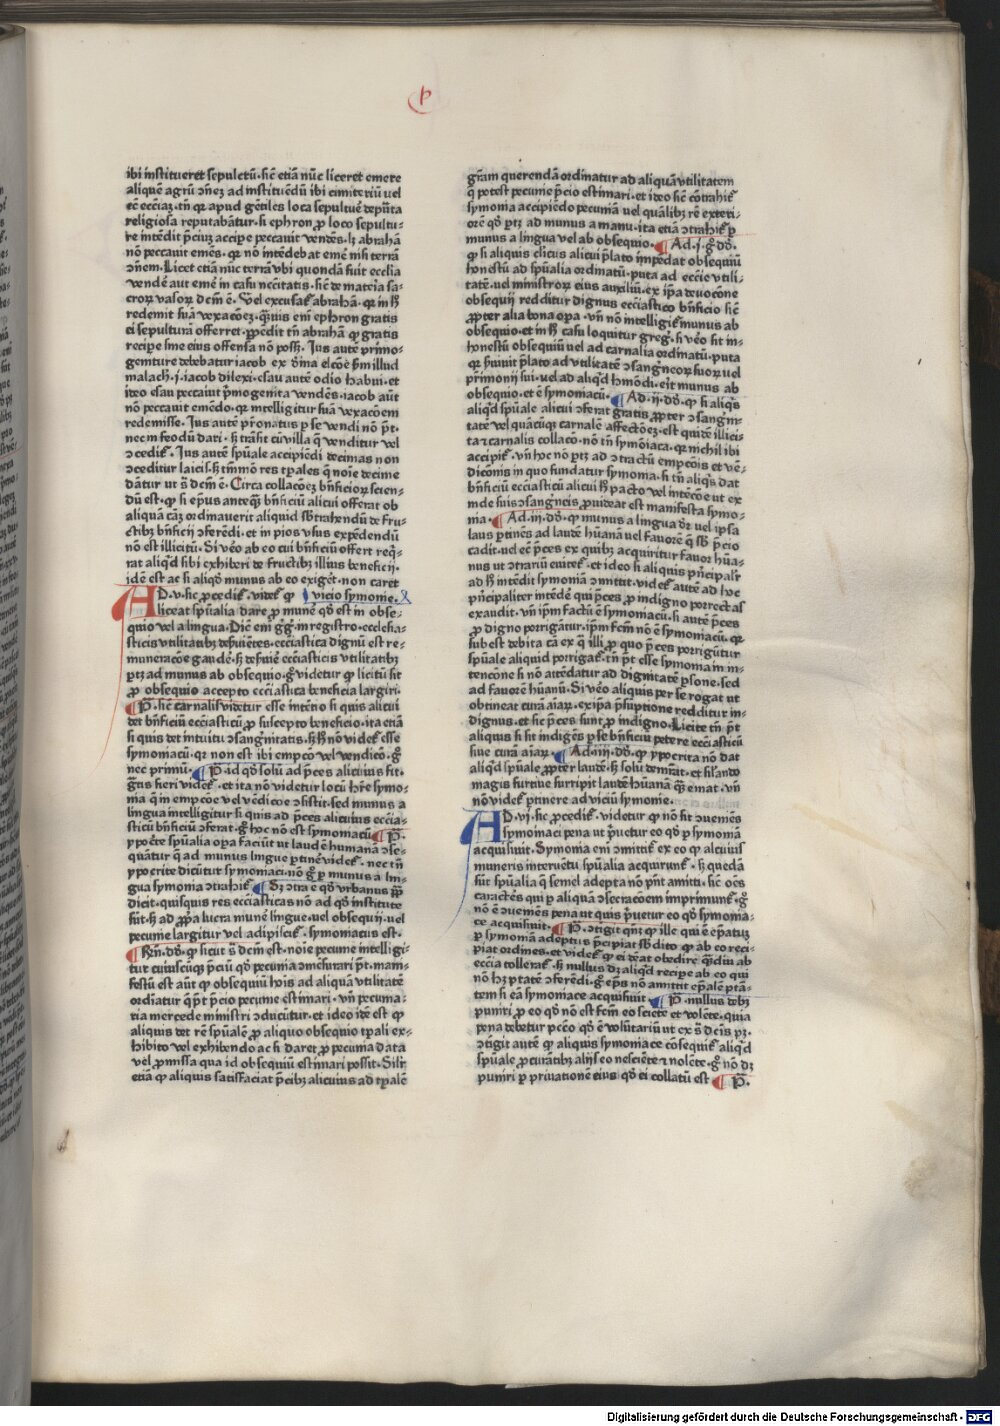 ibi instituerēt sepulcrū. sic̄ etiā nūc liceret emere
aliquē agrū ɔ̄nez ad instituēdū ibi cimiteriū vel
et̄ eccl̄iaꝫ. tn̄ qꝛ apud gētiles loca sepultuꝛe deputa
religiosa reputabātur. si ephron ꝓ loco sepultu-
re intēdit p̄ciuꝫ accipe peccauit vendēs. lꝫ abrahā
nō peccauit emēs. qꝛ nō intēdebat emē nisi terrā
ɔ̄nem. Licet etiā nūc terrā vbi quondā fuit ecclia
vendē aut emē in casu necc̄itatis. sic̄ de mateīa sa-
croꝝ vasoꝝ dc̄m ē. Vel excusat̄ abrahā. qꝛ in h̄
redemit suā vexacōeꝫ. q̄uis eni ephron gratis
ei sepulturā offerret. ꝑpēdit tn̄ abrahā ꝙ gratis
recipe sine eius offensa nō possꝫ. Ius autē primo-
geniture debebatur iacob ex d̄ina elcōe s̄m illud
malach. j. iacob dilexi. esau autē odio habui. et
ideo esau peccauit p̄mogenita vendēs. iacob aūt
nō peccauit emēdo. qꝛ intelligitur suā vexacōem
redemisse. Ius autē pr̄onatus p se vendi nō p̄t.
nec in feodū dari. sꝫ trāsit cū villa q̄ venditur vel
ɔcedit̄. Ius autē spūale accipiēdi decimas non
ɔceditur laicis. sꝫ tm̄mō res tp̄ales q̄ noīe decime
dātur ut s̄ dcm̄ ē. Circa collacōeꝫ bn̄ficioꝝ scien-
dū est. ꝙ si ep̄us anteq̄ꝫ bn̄ficiū alicui offerat ob
aliquā cāꝫ ordinauerit aliquid sb̄trahendū de fru-
ctibꝫ bn̄ficij ɔferēdi. et in pios vsus expēdendū
nō est illicitū. Si v̄o ab eo cui bn̄ficiū offert req̄-
rat aliq̄d sibi exhiberi de fructibꝫ illius beneficij.
idē est ac si aliq̄d munus ab eo exiḡet. non caret
vicio symonie.
AD. v. sic ꝓcedit̄. videt̄ ꝙ
liceat spūalia dare ꝓ munē qd̄ est in obse-
quio vel a lingua. Dic̄ eni grḡ in registro. ecclesia-
sticis utilitatibꝫ deseruiētes. eccl̄iastica dignū est re-
muneracōe gaudē. sꝫ deseruiē eccl̄iasticis vtilitatibꝫ
ptꝫ ad munus ab obsequio. ḡ videtur ꝙ licitū sit
ꝓ obsequio accepto eccl̄iastica beneficia largiri.
P̄. sic̄ carnalis videtur esse intēcio si quis alicui
det bn̄ficiū eccl̄iasticū ꝓ suscepto beneficio. ita etiā
si quis det intuitu ɔsanḡnitatis. sꝫ h̄ nō videt̄ esse
symoniacū. qꝛ non est ibi empcō vel vendicō. ḡ
nec primū. P̄. id qd̄ solū ad p̄ces alicuius fit.
gr̄tis fieri videt̄. et ita nō videtur locū hr̄e symo-
nia q̄ in empcōe vel vēdicōe ɔsistit. sed munus a
lingua intelligitur si quis ad p̄ces alicuius eccl̄ia-
sticū bn̄ficiū ɔferat. ḡ hoc nō est symoniacū. P̄.
ypocr̄te spūalia opa faciūt ut laudē humanā ɔse-
quātur q̄ ad munus lingue ptinē videt̄. nec tn̄
ypocrite dicūtur symoniaci. nō ḡ p munus a lin-
gua symonia ɔtrahit̄. Sꝫ ɔtra ē qd̄ vrbanus pp̄
dicit. quisquis res eccl̄iasticas nō ad qd̄ institute
sūt. sꝫ ad ꝓpa lucra munē lingue. uel obsequij. uel
pecunie largitur vel adipiscit̄. symoniacus est.
Rn̄. dd̄. ꝙ sicut s̄ dcm̄ est. noīe pecunie intelligi-
tur cuiuscūqꝫ p̄ciū qd̄ pecunia ɔmēsurari p̄t. mani-
festū est aūt ꝙ obsequiū hoīs ad aliquā vtilitatē
ordīatur q̄ p̄t p̄cio pecunie estimari. vn̄ pecunia-
ria mercede ministri ɔducūtur. et ideo idē est ꝙ
aliquis det rē spūalē ꝓ aliquo obsequio tp̄ali ex-
hibito vel exhibendo ac si daret ꝓ pecunia data
vel ꝓmissa qua id obsequiū estimari possit. Silīr
etiā ꝙ aliquis satisfaciat p̄cibꝫ alicuius ad tp̄alē
gr̄am querendā ordinatur ad aliquā vtilitatem
q̄ potest pecunie p̄cio estimari. et ideo sic̄ ɔtrahit̄
symonia accipiēdo pecuniā vel quālibꝫ rē exteri-
orē qd̄ ptꝫ ad munus a manu. ita etiā ɔtrahit̄ p
munus a lingua vel ab obsequio. Ad. j. ḡ dd̄.
ꝙ si aliquis clicus alicui p̄lato impēdat obsequiū
honestū ad spūalia ordinatū. puta ad eccl̄ie vtili-
tatē. uel ministroꝝ eius auxiliū. ex ip̄a deuocōne
obsequij redditur dignus eccl̄iastico bn̄ficio sic̄
ꝓpter alia bona opa. vn̄ nō intelligit̄ munus ab
obsequio. et in h̄ casu loquitur greḡ. si v̄o sit in-
honestū obsequiū uel ad carnalia ordinatū. puta
qꝛ seruiuit p̄lato ad vtilitatē ɔsangneoꝝ suoꝝ uel
pr̄imonij sui. uel ad aliq̄d h̄mōdi. erit munus ab
obsequio. et ē symoniacū. Ad. ij. dd̄. ꝙ si aliq̄s
aliq̄d spūale alicui ɔferat gratis ꝓpter ɔsangni-
tatē vel quācūqꝫ carnalē affectōeꝫ. est quidē illici-
ta ⁊ carnalis collacō. nō tn̄ symōiaca. qꝛ nichil ibi
accipit̄. vn̄ hoc nō ptꝫ ad ɔtractū empcōis et vē-
dicōnis in quo fundatur symonia. si tn̄ aliq̄s dat
bn̄ficiū eccl̄iasticū alicui h̄ pacto vel intēcōe ut ex-
inde suis ɔsangneis ꝓuideat est manifesta symo-
nia. Ad. iij. dd̄. ꝙ munus a lingua dr̄ vel ipsa
laus ptinēs ad laudē hūanā uel fauorē q̄ sb̄ p̄cio
cadit. uel et̄ p̄ces ex quibꝫ acquiritur fauor hūa-
nus ut ɔtrariū euitet̄. et ideo si aliquis pn̄cipalr̄
ad h̄ intēdit symoniā ɔmittit. videt̄ autē ad hoc
pn̄cipaliter intēdē qui p̄ces ꝓ indigno porrectas
exaudit. vn̄ ip̄m factū ē symoniacū. si autē p̄ces
ꝓ digno porrigātur. ip̄m fcm̄ nō ē symoniacū. qꝛ
subest debita cā ex q̄ illi ꝓ quo p̄ces porriguntur
spūale aliquid porrigat̄. tn̄ p̄t esse symonia in in-
tencōne si nō attēdatur ad dignitatē psone. sed
ad fauorē hūanū. Si v̄o aliquis per se rogat ut
obtineat curā aīaꝝ. ex ip̄a p̄sūptione redditur in-
dignus. et sic p̄ces sunt ꝓ indigno. Licite tn̄ p̄t
aliquis si sit indigēs p se bn̄ficiū petere eccl̄iasticū
siue curā aīaꝝ. Ad. iiij. dd̄. ꝙ ypocrita nō dat
aliq̄d spūale ꝓpter laudē. sꝫ solū demr̄at. et sil̄ando
magis furtiue surripit laudē hūanā q̄ꝫ emat. vn̄
nō videt̄ ptinere ad viciū symonie.
AD. vj. sic ꝓcedit̄. videtur ꝙ nō sit ɔuenīes
symoniaci pena ut p̄uetur eo qd̄ p symoniā
acquisiuit. Symonia eni ɔmittit̄ ex eo ꝙ alicuius
muneris interuētu spūalia acquirunt̄. sꝫ quedā
sūt spūalia q̄ semel adepta nō pn̄t amitti. sic̄ oēs
caractēs qui p aliquā ɔsecracōem imprimunt̄. ḡ
nō ē ɔueniēs pena ut quis p̄uetur eo qd̄ symonia-
ce acquisiuit. P̄. ɔtigit qn̄qꝫ ꝙ ille qui ē ep̄atuꝫ
p symoniā adeptus p̄cipiat sb̄dito ꝙ ab eo reci-
piat ordines. et videt̄ ꝙ ei debeat obedire q̄diu ab
eccl̄ia tollerat̄. sꝫ nullus dꝫ aliq̄d recipe ab eo qui
nō hꝫ p̄tatē ɔferēdi. ḡ ep̄us nō amittit ep̄alē p̄ta-
tem si eā symoniace acquisiuit. P̄. nullus debꝫ
puniri ꝓ eo qd̄ nō est fcm̄ eo sciēte et volēte. quia
pena debetur pcc̄o qd̄ ē volūtariū ut ex s̄ dcīs pꝫ.
ɔtigit autē ꝙ aliquis symoniace ɔsequit̄ aliq̄d
spūale ꝓcurātibꝫ alijs eo nesciente ⁊ nolēte. ḡ nō dꝫ
puniri p priuationē eius qd̄ ei collatū est. P̄.
Digitalisierung gefördert durch die Deutsche Forschungsgemeinschaft - DFG